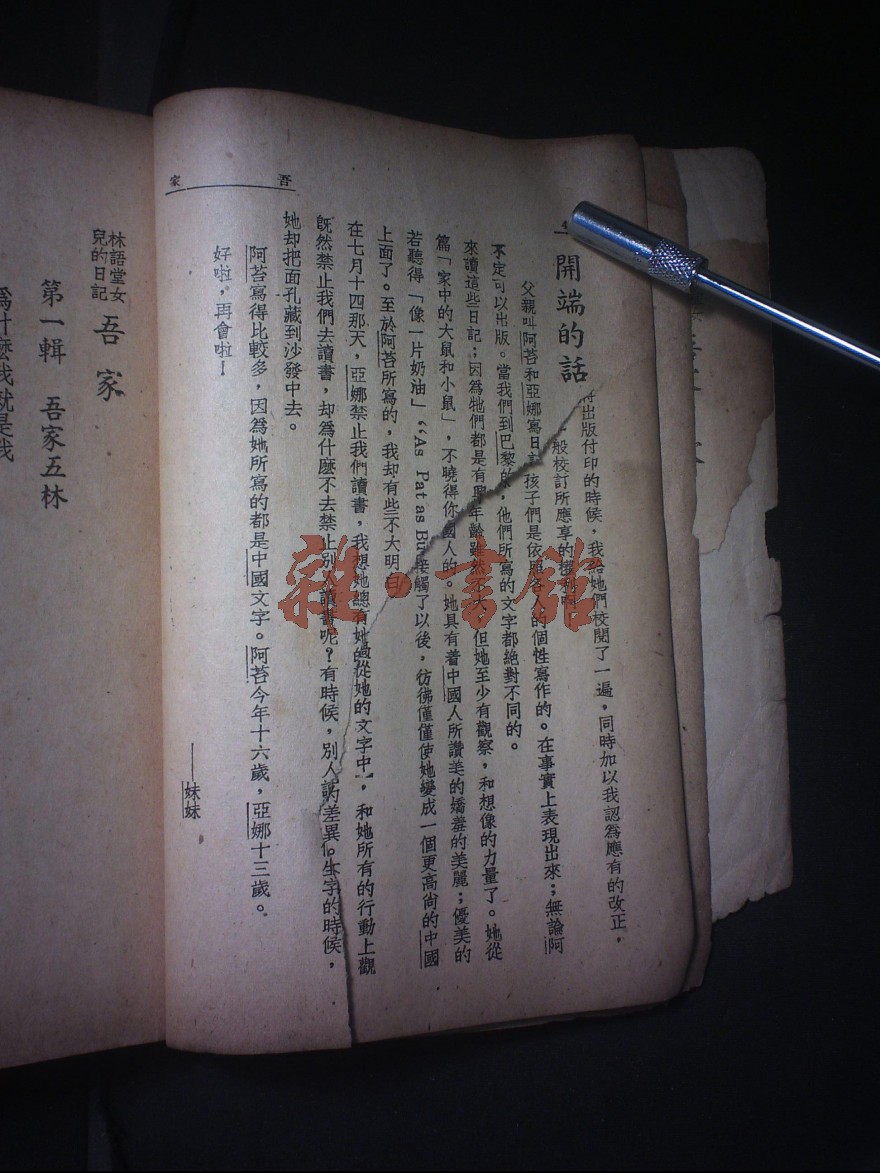 吾家
開端的話
出版付印的時候，我給她們校閱了一遍，同時加以我認爲應有的改正，
一般校訂所應享的權利啊！
父親叫阿苔和亞娜寫日記孩子們是依照各人的個性寫作的。在事實上表現出來；無論阿
不定可以出版。當我們到巴黎的，他們所寫的文字都絕對不同的。
來讀這些日記；因爲牠們都是有興年齡雖然不大，但她至少有觀察，和想像的力量了。她從
篇「家中的大鼠和小鼠」，不曉得你國人的。她具有着中國人所讚美的嬌羞的美麗；優美的
若聽得「像一片奶油」“As Pat as Bu接觸了以後，彷彿僅僅使她變成一個更高尚的中國
上面了。至於阿苔所寫的，我却有些不大明白
在七月十四那天，亞娜禁止我們讀書，我想她總有她的過從她的文字中，和她所有的行動上觀
旣然禁止我們去讀書，却爲什麽不去禁止別人讀書呢？有時候，別人讀差異。生字的時候，
她却把面孔藏到沙發中去。
阿苔寫得比較多，因爲她所寫的都是中國文字。阿苔今年十六歲，亞娜十三歲。
好啦，再會啦！
——妹妹
林語堂女兒的日記 吾家
第一輯 吾家五林
爲什麽我就是我
雜·書館